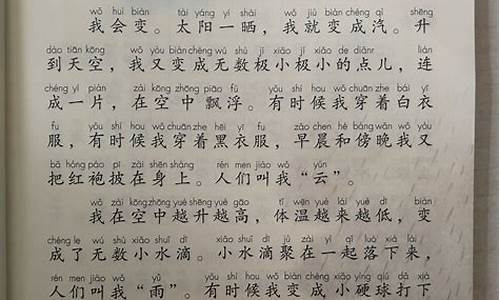 wǒ huì biàn tài yáng yí shài wǒ jiù biàn chéng qì shēng
我会变。太阳一晒，我就变成汽。升
dào tiān kōng wǒ yòu biàn chéng wú shù jí xiǎo jí xiǎo de diǎnr lián
到天空，我又变成无数极小极小的点儿，连
chéng yí piàn zài kōng zhōng piāo fú yǒu shí hou wǒ chuān zhe bái yī
成一片，在空中飘浮。有时候我穿着白衣
fu yǒu shí hou wǒ chuān zhe hēi yī fu zǎo chen hé bàng wǎn wǒ yòu
服，有时候我穿着黑衣服，早晨和傍晚我又
bǎ hóng páo pī zài shēn shang rén men jiào wǒ yún
把红袍披在身上。人们叫我“云”。
wǒ zài kōng zhōng yuè shēng yuè gāo tǐ wēn yuè lái yuè dī biàn
我在空中越升越高，体温越来越低，变
chéng le wú shù xiǎo shuǐ dī xiǎo shuǐ dī jù zài yì qǐ luò xià lái
成了无数小水滴。小水滴聚在一起落下来，
rén men jiào wǒ yǔ yǒu shí hou wǒ biàn chéng xiǎo yìng qiú dǎ xià
人们叫我“雨”。有时候我变成小硬球打下